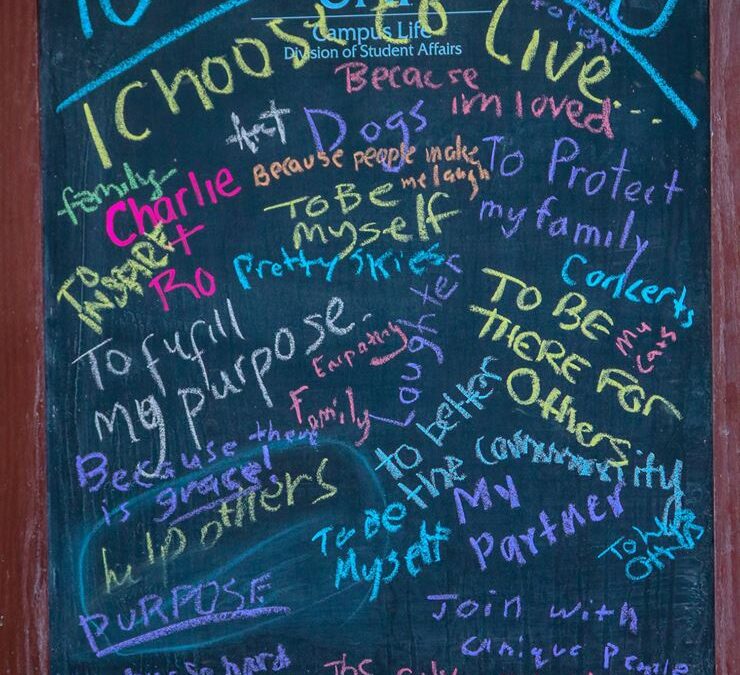 to fight
Campus Life
Division of Student Affairs
I Choose to Live...
Because
im loved
Dogs
Because people make
me laugh
To Protect
my family
family
Charlie
+
RO
TO BE
myself
TO
INSPIRE
Pretty skies
Concerts
Laughter
TO BE
THERE FOR
Others
My
cats
To fufill
my purpose.
Empathy
Family
to better
the community
Because there
is grace!
help others
To Be
Myself
My
partner
PURPOSE
Join with
unique people